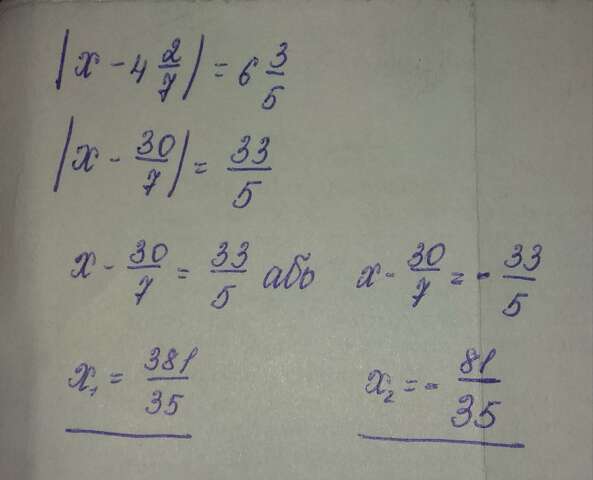 |x - 4 2/7| = 6 3/5
|x - 30/7| = 33/5
x - 30/7 = 33/5 або x - 30/7 = - 33/5
x₁ = 381/35 x₂ = - 81/35